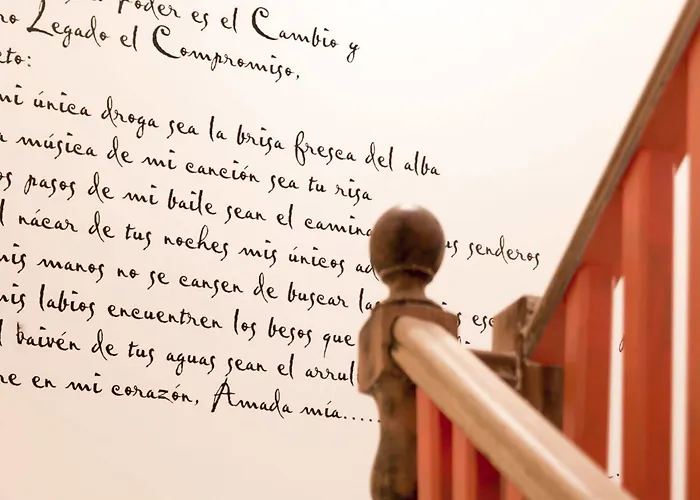 Poder es el Cambio y
Legado el Compromiso,
única droga sea la brisa fresca del alba
música de mi canción sea tu risa
pasos de mi baile sean el senderos
nácar de tus noches mis únicos
manos no se cansen de buscar
labios encuentren los besos que
baivén de tus aguas sean el
en mi corazón, Amada mía.....